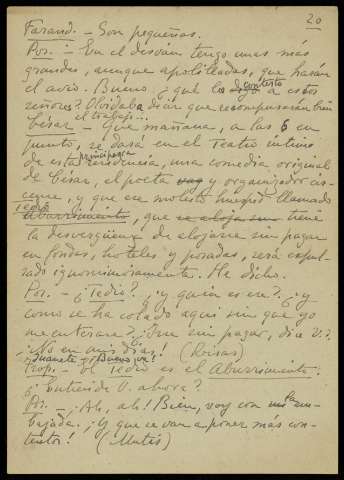 20
Farand. - Son pequeñas.
Pos. - En el desván tengo unas más
grandes, aunque apolilladas, que harán
el avío. Bueno, ¿qué les digo contesto a estos
señores? Olvidaba decir que recompensarán bien
el trabajo...
César - Que mañana, a las 6 en
punto, se dará en el Teatro íntimo
de esta principesca residencia, una comedia original
de César, el poeta y organizador
y que ese molesto huésped llamado
Tedio Aburrimiento, que se aloja sin tiene
la desvergüenza de alojarse sin pagar
en fondas, hoteles y posadas, será expul-
sado ignominiosamente. He dicho.
Pos. - ¿Tedio? ¿y quién es ese? ¿y
como se ha colado aquí sin que yo
me enterase? ¿Y sin pagar, dice V.?
¡No en mis días! (Risas)
Juanete - ¡Buena es!
Trop. - El Tedio es el Aburrimiento.
¿Entiende V. ahora?
Pos. - ¡Ah, ah! Bien, voy con la em-
bajada. ¡Y que se van a poner más con-
tentos! (Mutis)